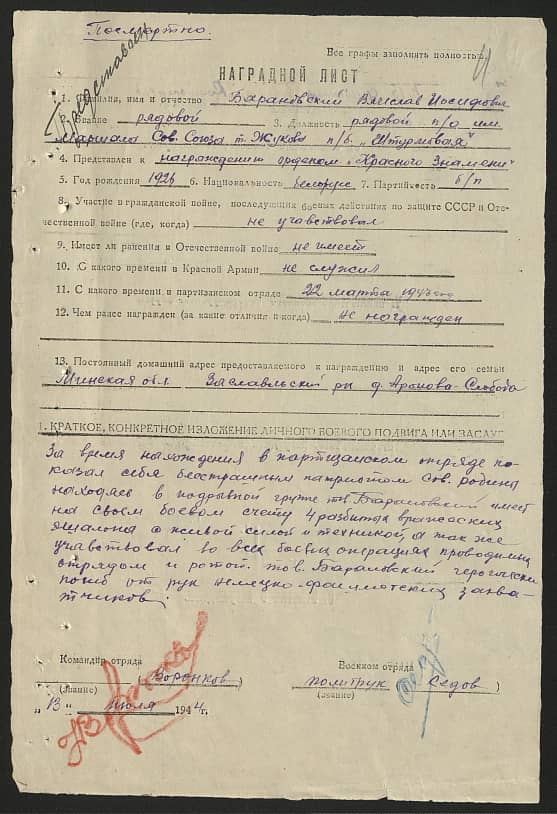 Посмертно.
Все графы заполнять полностью.
НАГРАДНОЙ ЛИСТ
1. Фамилия, имя и отчество Барановский Вячеслав Иосифович
2. Звание рядовой 3. Должность рядовой п/о им.
Маршала Сов. Союза т. Жукова п/б. „Штурмовая"
4. Представлен к награждению орденом „Красного Знамени"
5. Год рождения 1926 6. Национальность белорус 7. Партийность б/п
8. Участие в гражданской войне, последующих боевых действиях по защите СССР и Оте-
чественной войне (где, когда) не учавствовал
9. Имеет ли ранения в Отечественной войне не имеет
10. С какого времени в Красной Армии не служил
11. С какого времени в партизанском отряде 22 марта
12. Чем ранее награжден (за какие отличия и когда) не награжден
13. Постоянный домашний адрес предоставляемого к награждению и адрес его семьи
Минская обл. Заславльский р-н д. Слобода
1. КРАТКОЕ, КОНКРЕТНОЕ ИЗЛОЖЕНИЕ ЛИЧНОГО БОЕВОГО ПОДВИГА ИЛИ ЗАСЛУГ
За время нахождения в партизанском отряде по-
казал себя бесстрашным патриотом Сов. родины
находясь в подрывной группе тов. Барановский имеет
на своём боевом счету 4 разбитых вражеских
эшалона с живой силой и техникой, а так же
учавствовал во всех боевых операциях проводимых
отрядом и ротой. тов. Барановский героически
погиб от рук немецко-фашистских захва-
тчиков.
Командир отряда Военком отряда
(Воронков) политрук Седов)
(звание) (звание)
„13" июля 1944 г.